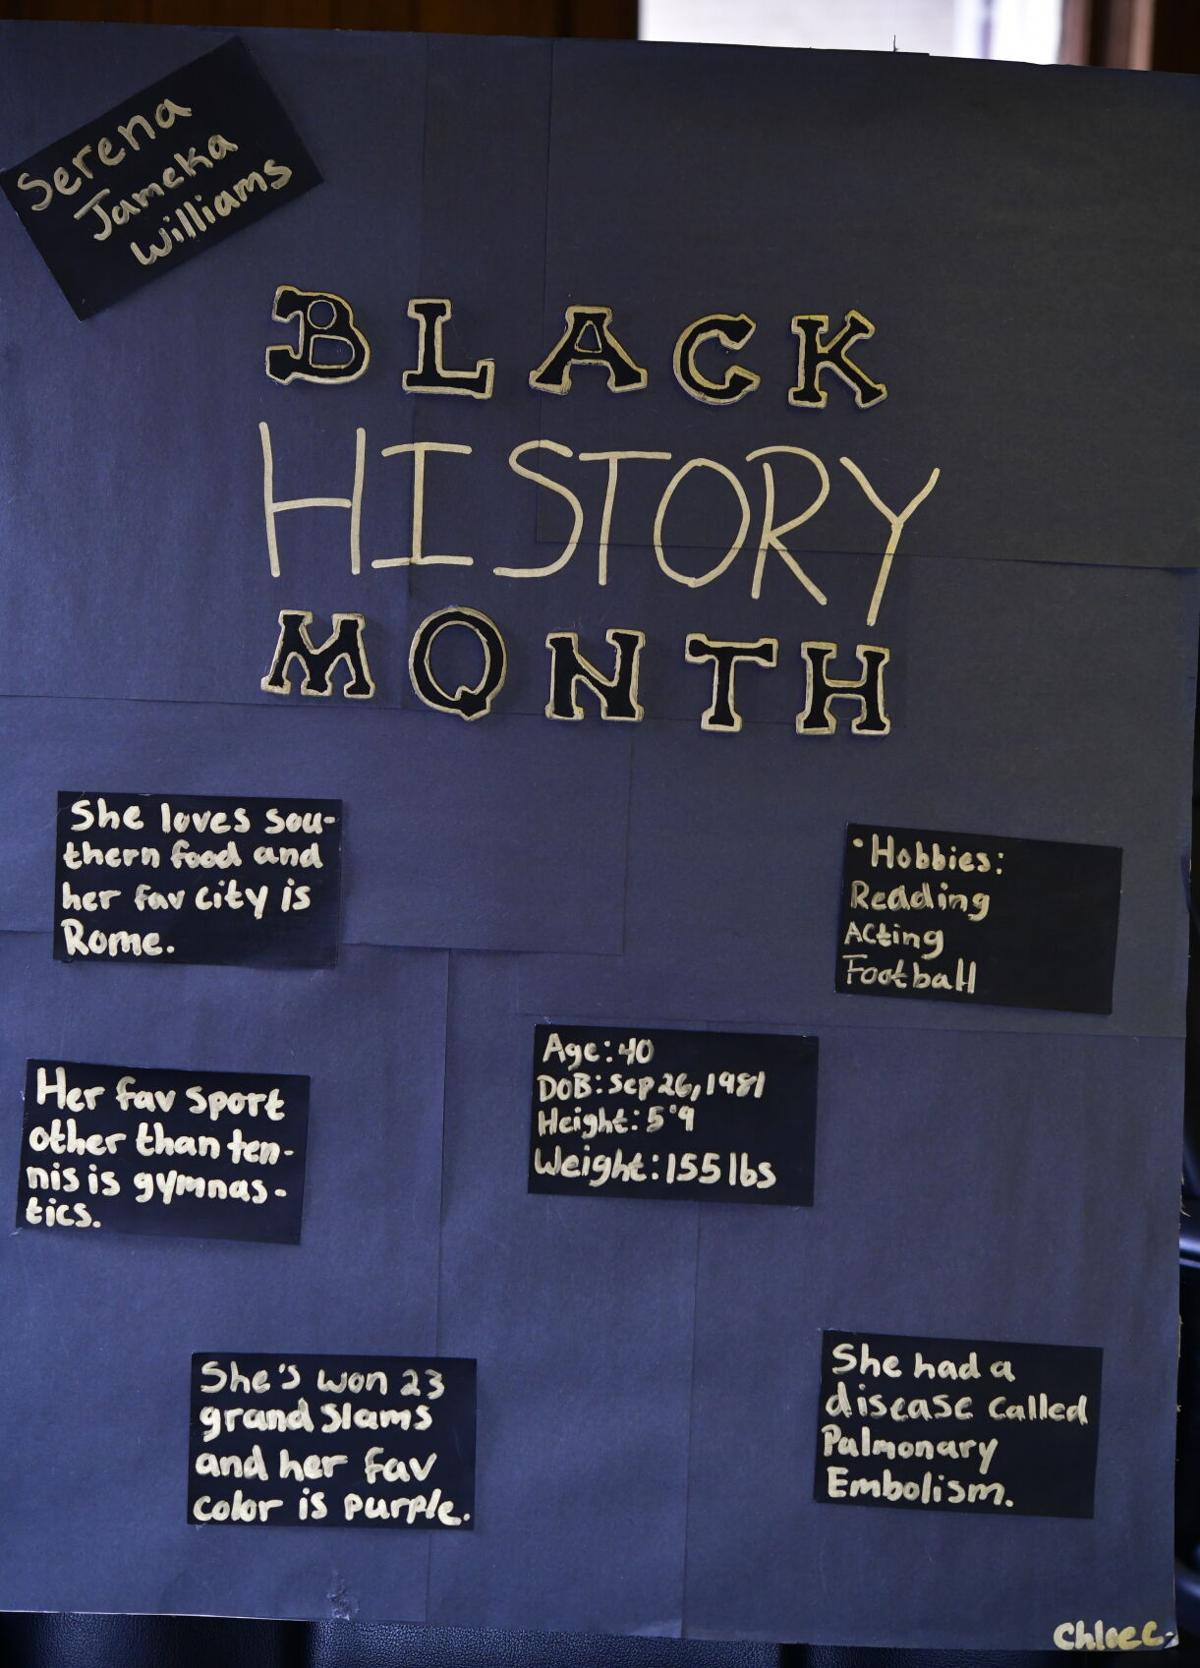 Serena
Jameka
Williams
BLACK
HISTORY
MONTH
She loves sou-
thern food and
her fav city is
Rome.
• Hobbies:
Reading
Acting
Football
Her fav sport
other than ten-
nis is gymnas-
tics.
Age: 40
DOB: Sep 26, 1981
Height: 5'9
Weight: 155 lbs
She's won 23
grand slams
and her fav
color is purple.
She had a
disease called
Palmonary
Embolism.
Chloe C.